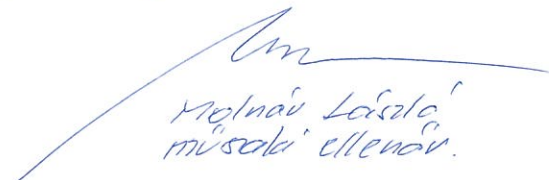 Molnár László
műszaki ellenőr.